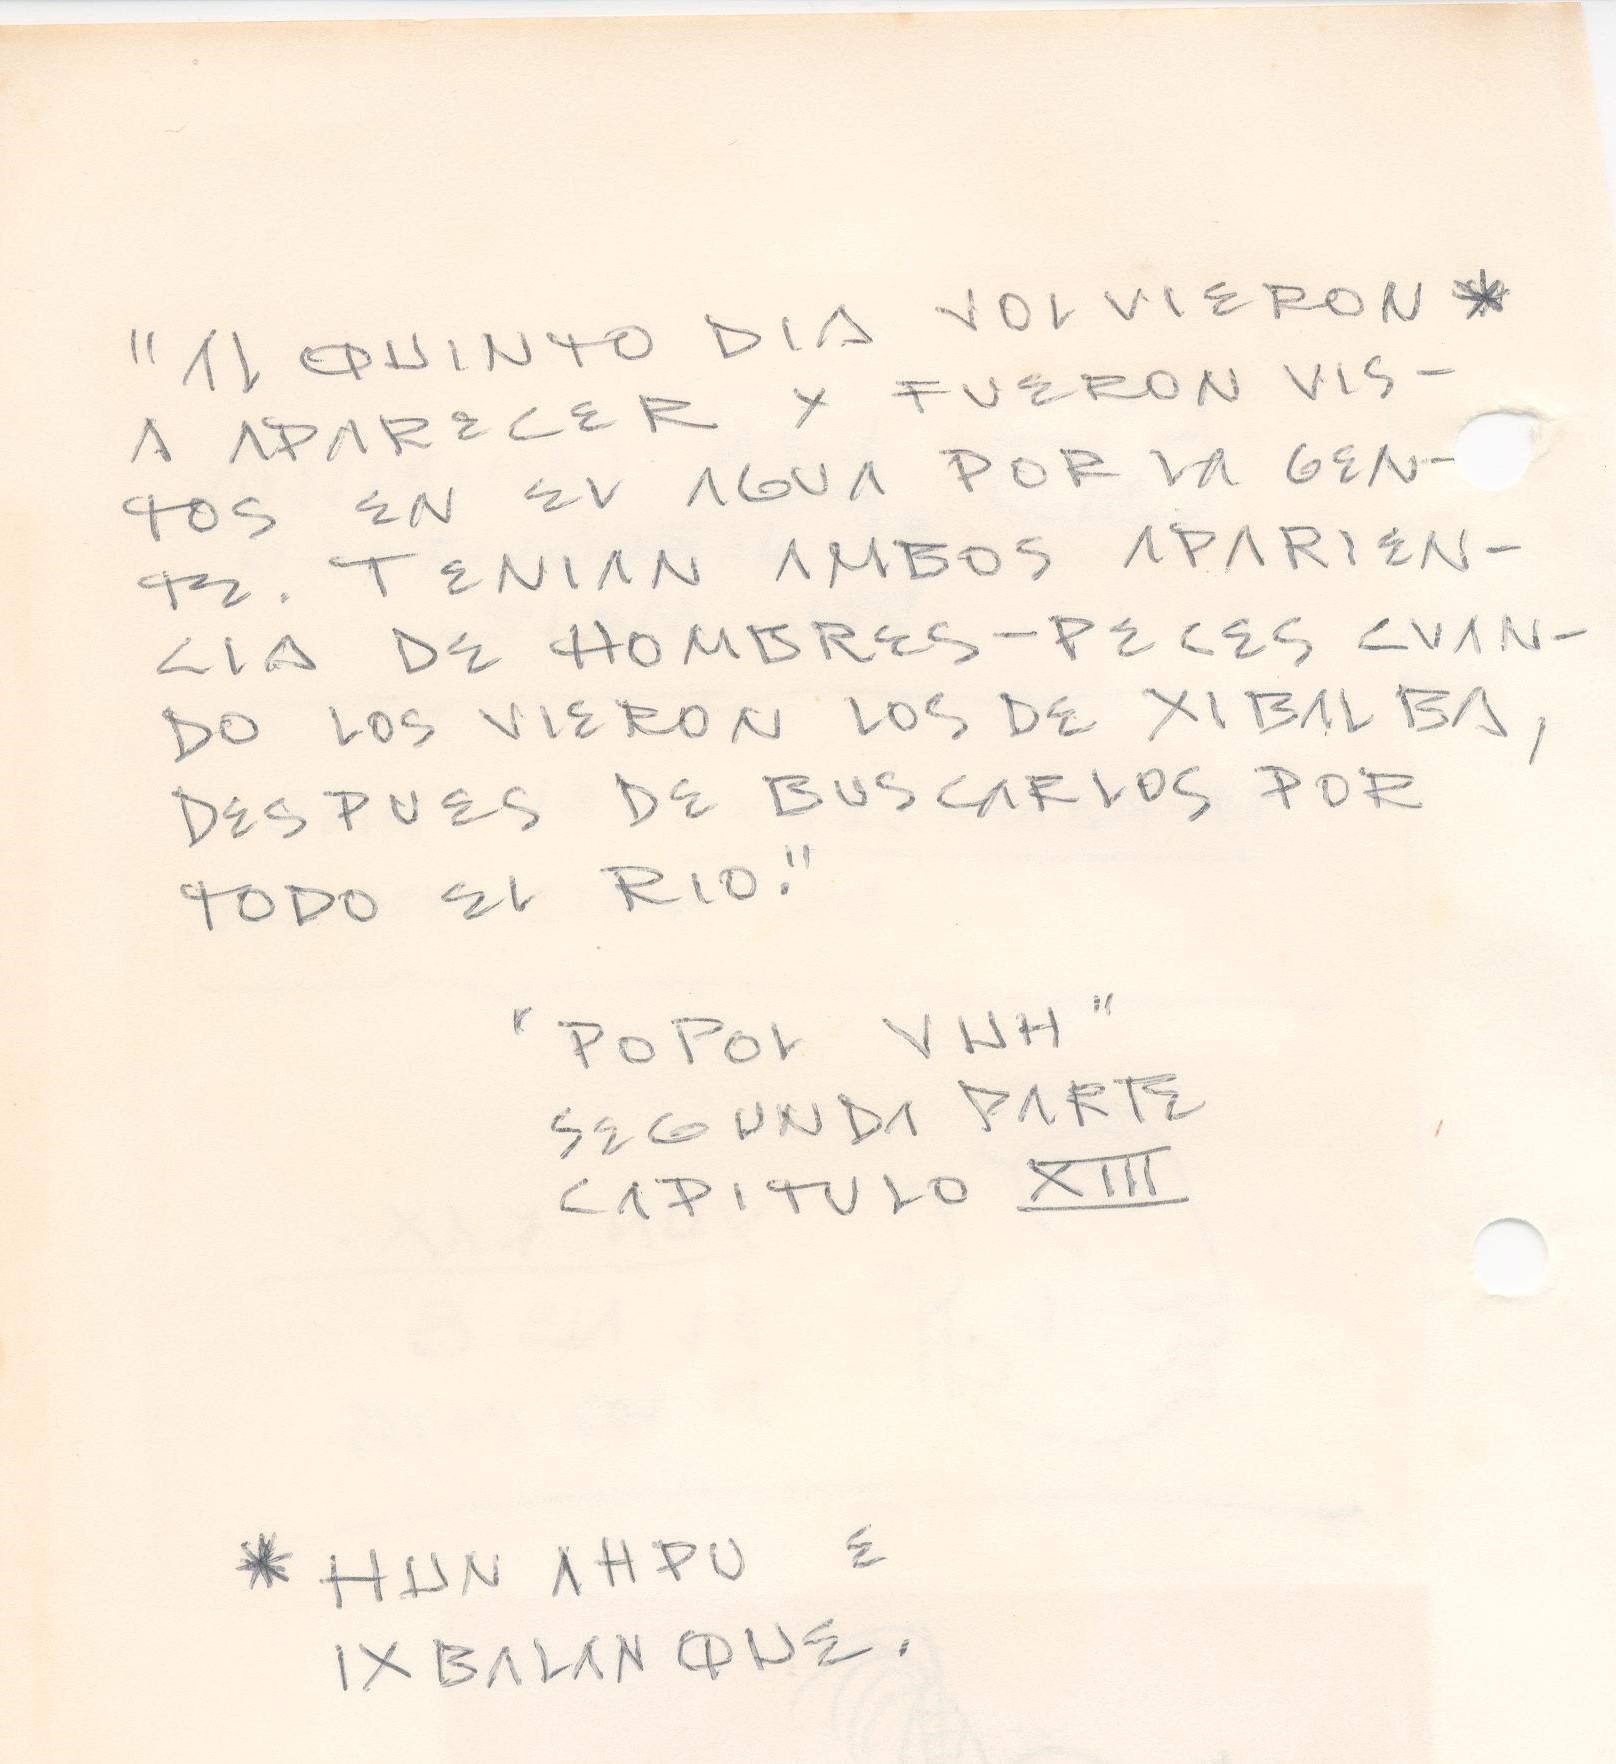 "AL QUINTO DIA VOLVIERON *
A APARECER Y FUERON VIS-
TOS EN EL AGUA POR LA GEN-
TE. TENIAN AMBOS APARIEN-
CIA DE HOMBRES-PECES CUAN-
DO LOS VIERON LOS DE XIBALBA,
DESPUES DE BUSCARLOS POR
TODO EL RIO."
"POPOL VUH"
SEGUNDA PARTE
CAPITULO XIII
* HUN AHPU E
IXBALANQUE.